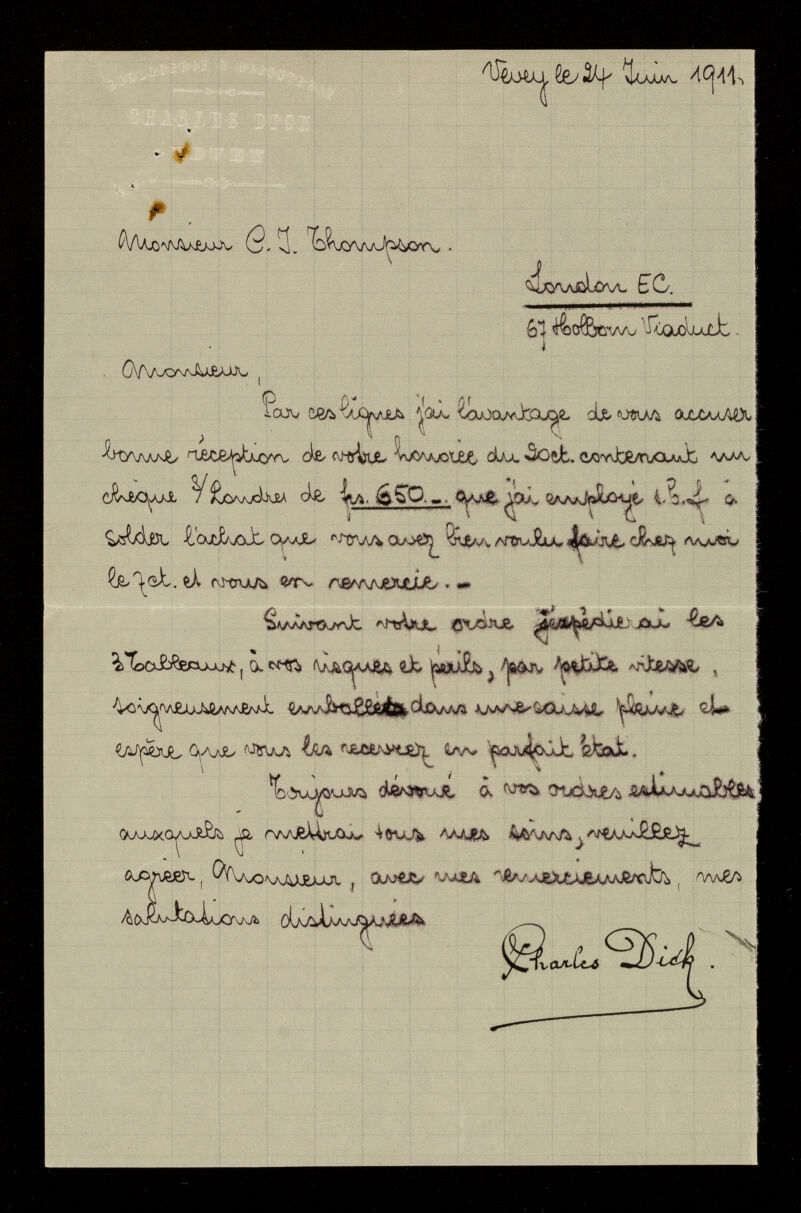 HORLOGERIE & BIJOUTERIE
CHARLES DICK
VEVEY
Vevey le 24 Juin 1911.
Monsieur C. J. Thompson.
London EC.
67 Holborn Viaduct.
Monsieur,
Par ces lignes j'ai l'avantage de vous accuser
bonne réception de votre honorée du 20ct. contenant un
chèque s/Londres de frs. 650.-. que j'ai employé s.b.f à
solder l'achat que vous avez bien voulu faire chez moi
le 7 ct. et vous en remercie. -
Suivant votre ordre j'expédierai les
3 Tableaux, à vos risques et périls, par petite vitesse,
soigneusement emballés dans une caisse pleine et
espère que vous les recevrez en parfait état.
Toujours dévoué à vos ordres estimables
auxquels je mettrai tous mes soins, veuillez
agréer, Monsieur, avec mes remerciements, mes
salutations distinguées
Charles Dick.